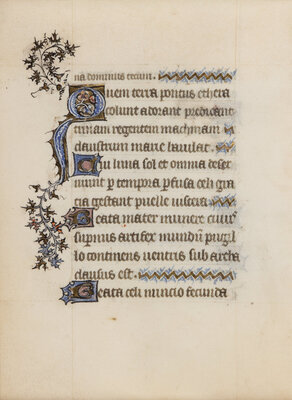 na dominus tecum.
Quem terra pontus ethera
colunt adorant predicant
trinam regentem machinam
claustrum marie baiulat.
Cui luna sol et omnia deser
uiunt p tempora pfusa celi gra
cia gestant puelle uiscera
Beata mater munere cuius
supernus artifex mundum pugil
lo continens uentris sub archa
clausus est.
Beata celi nuncio fecunda